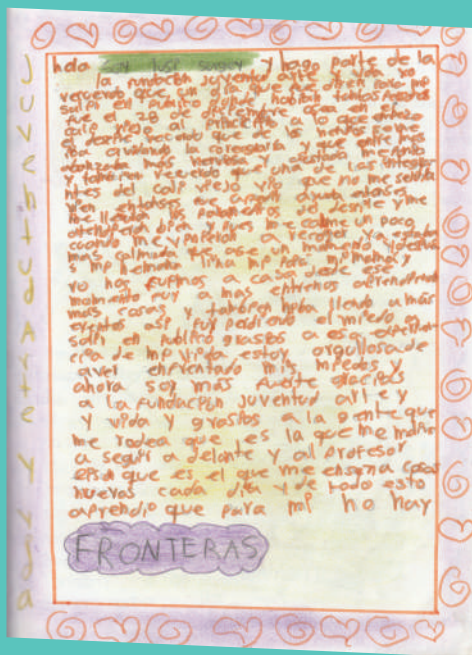 Juventud Arte y vida
hola soy luisi y hago parte de la
la fundacion juventud arte y vida yo
recuerdo que un dia que fue otro para mi
sali en publico donde habian tantas
fue el 28 de diciembre en el
calle viejo al principio a o que enpezo
el desfile recuerdo que de los nervios se me
iba olvidando la coreografia y que entre mas
avanzaba mas nerviosa y asustada me ponia
y tanbien recuerdo que una de las integran
ntes del cali viejo vio que no me sentia
bien entonses me ayuda entonses
me llevaron los del desfile y me
atendieron bien y pues me calme un poco
cuando me vinieron a recoger ya estaba
mas calmada y
s mi hermana lina mi papa mi mama y
yo nos fuimos a casa desde ese
momento fui a mas entrenos aprendiendo
mas cosas y tanbien haba llendo a más
eventos asi fui perdiendo el miedo en
salir en publico grasias a esa experien
cia de mi vida estoy orgullosa de
aver enfrentado mis miedos y
ahora soy mas fuerte gracias
a la fundacion juventud arte y
y vida y grasias a la gente que
me rodea que es la que me
a segir a delante y al profesor
que es el que me ensena cosas
nuevas cada dia y de todo esto
aprendio que para mi no hay
FRONTERAS